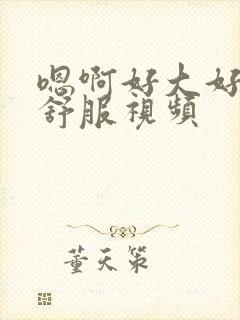 嗯啊好大好
舒服視頻
董天策